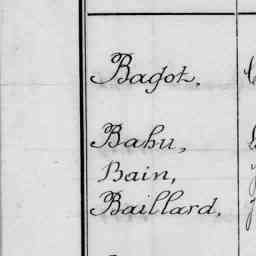 Bagot,
Bahu,
Bain,
Baillard,